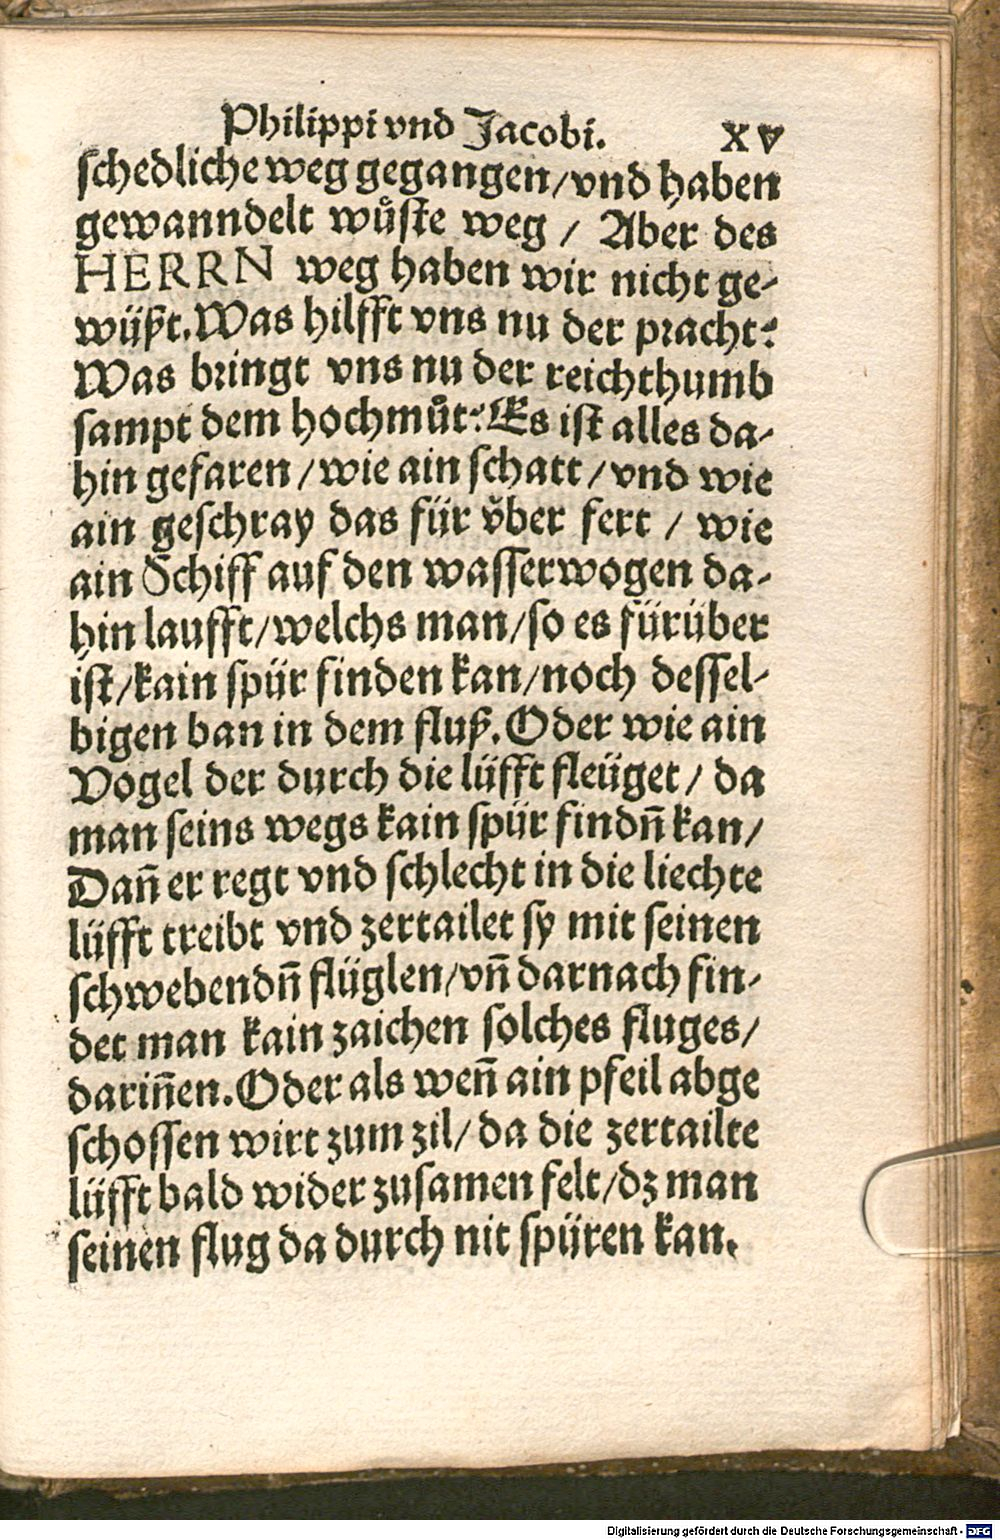 Philippi vnd Jacobi. XV
schedliche weg gegangen/vnd haben
gewanndelt wuͤste weg / Aber des
HERRN weg haben wir nicht ge-
wüßt. Was hilfft vns nu der pracht?
Was bringt vns nu der reichthumb
sampt dem hochmuͦt? Es ist alles da-
hin gefaren / wie ain schatt / vnd wie
ain geschray das für vͤber fert / wie
ain Schiff auf den wasserwogen da-
hin laufft/welchs man/so es fürüber
ist/kain spür finden kan/noch dessel-
bigen ban in dem fluß. Oder wie ain
Vogel der durch die lüfft fleüget / da
man seins wegs kain spür findn̄ kan/
Dan̄ er regt vnd schlecht in die liechte
lüfft treibt vnd zertailet sy mit seinen
schwebendn̄ flüglen/vn̄ darnach fin-
det man kain zaichen solches fluges/
darin̄en. Oder als wen̄ ain pfeil abge
schossen wirt zum zil/ da die zertailte
lüfft bald wider zusamen felt/dz man
seinen flug da durch nit spüren kan.
Digitalisierung gefördert durch die Deutsche Forschungsgemeinschaft - DFG